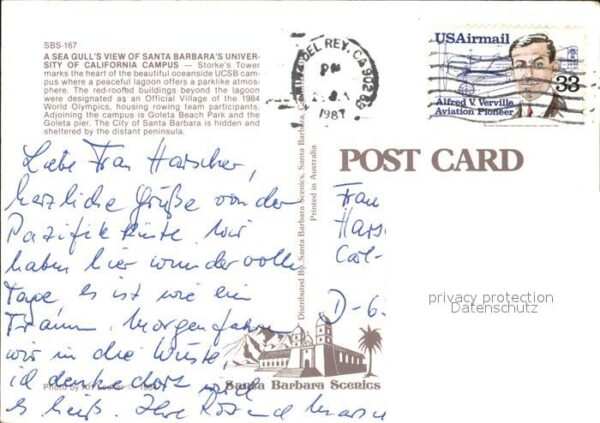 SBS-167
A SEA GULL'S VIEW OF SANTA BARBARA'S UNIVER-
SITY OF CALIFORNIA CAMPUS — Storke's Tower
marks the heart of the beautiful oceanside UCSB cam-
pus where a peaceful lagoon offers a parklike atmos-
phere. The red-roofed buildings beyond the lagoon
were designated as an Official Village of the 1984
World Olympics, housing rowing team participants.
Adjoining the campus is Goleta Beach Park and the
Goleta pier. The City of Santa Barbara is hidden and
sheltered by the distant peninsula.
Liebe Frau Harscher,
herzliche Grüße von der
Pazifikküste. Wir
haben hier wundervolle
Tage, es ist wie ein
Traum. Morgen fahren
wir in die Wüste
ich denke dort wird
es heiß. Ihre
Photo by
Distributed By: Santa Barbara Scenics, Santa Barbara,
Printed in Australia
DEL REY, CA 902
PM
1987
USAirmail
33
Alfred V. Verville
Aviation Pioneer
POST CARD
Frau
Hars
Carl-
D-6
privacy protection
Datenschutz
Santa Barbara Scenics